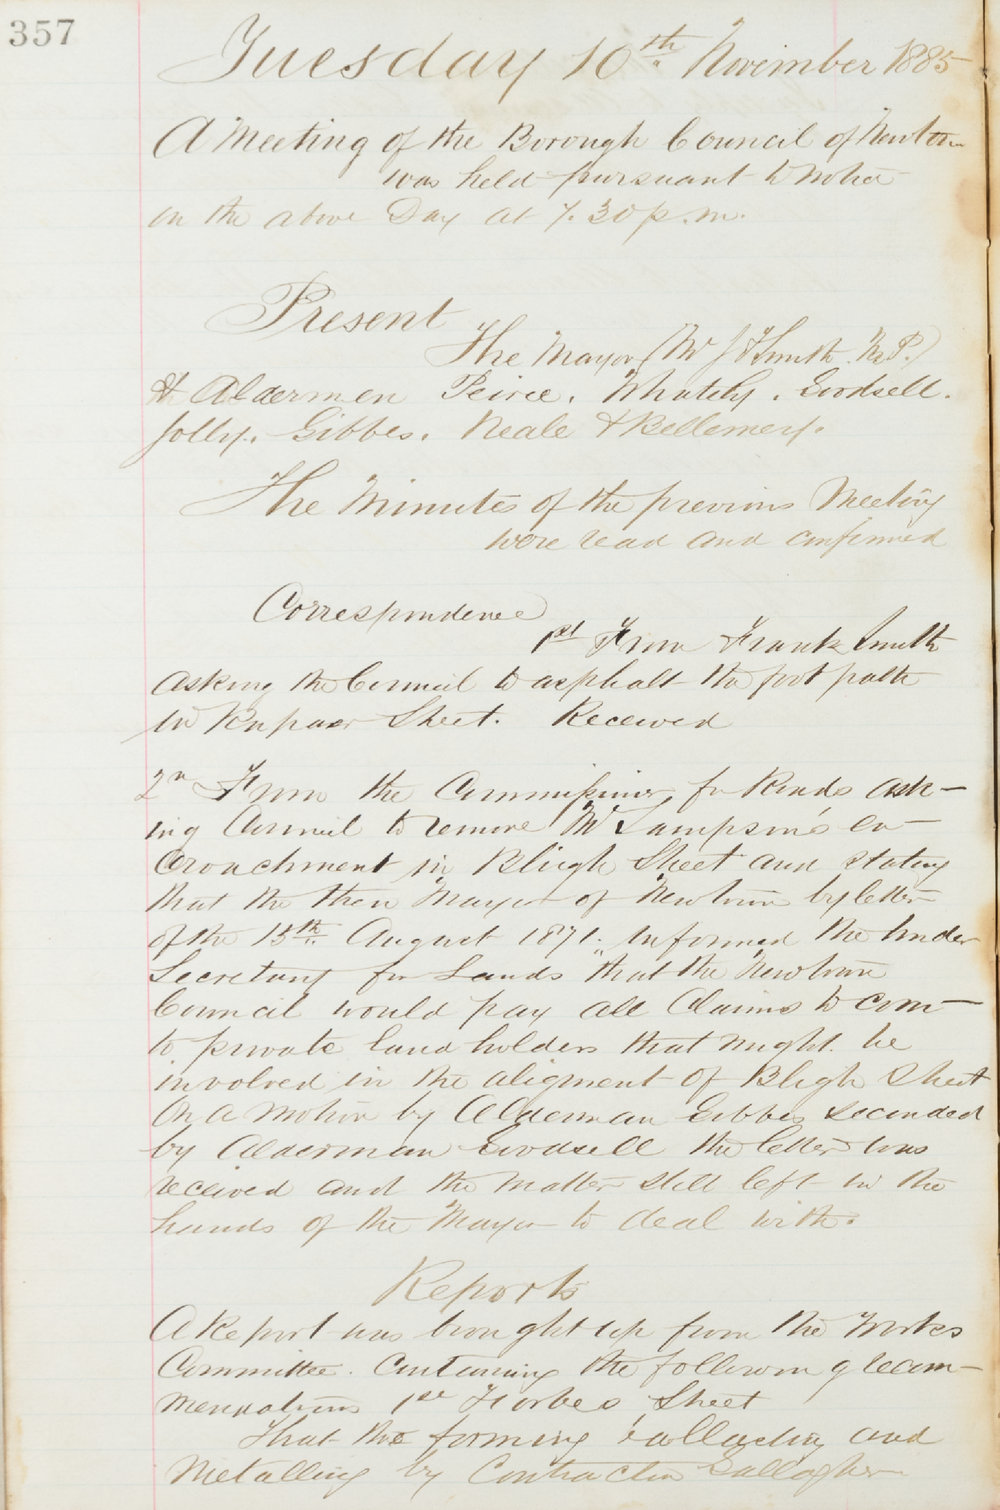 357
Tuesday 10th November 1885
A Meeting of the Borough Council of Newtown
was held pursuant to notice
on the above Day at 7.30 p.m.
Present
The Mayor (Mr J F Smith M.P.)
& Aldermen Peirce. Whately. Goodsell.
Jolly. Gibbes. Neale & Bellemey.
The Minutes of the previous Meeting
were read and confirmed
Correspondence
1st From Frank Smith
asking the Council to asphalt the foot path
in Street. Received
2n From the Commissioner for Roads ask-
ing Council to remove Mr Sampson's en-
croachment in Bligh Street and stating
that the then Mayor of Newtown by letter
of the 15th August 1871. informed the Under
Secretary for Lands "that the Newtown
Council would pay all Claims to com-
to private land holders that might be
involved in the aligment of Bligh Street
On a motion by Alderman Gibbes seconded
by Alderman Goodsell the letter was
received and the matter still left in the
hands of the Mayor to deal with.
Reports
A Report was brought up from the Works
Committee. Containing the following recom-
mendations 1st Forbes Street
That the forming ballasting and
Metalling by Contractor Gallagher